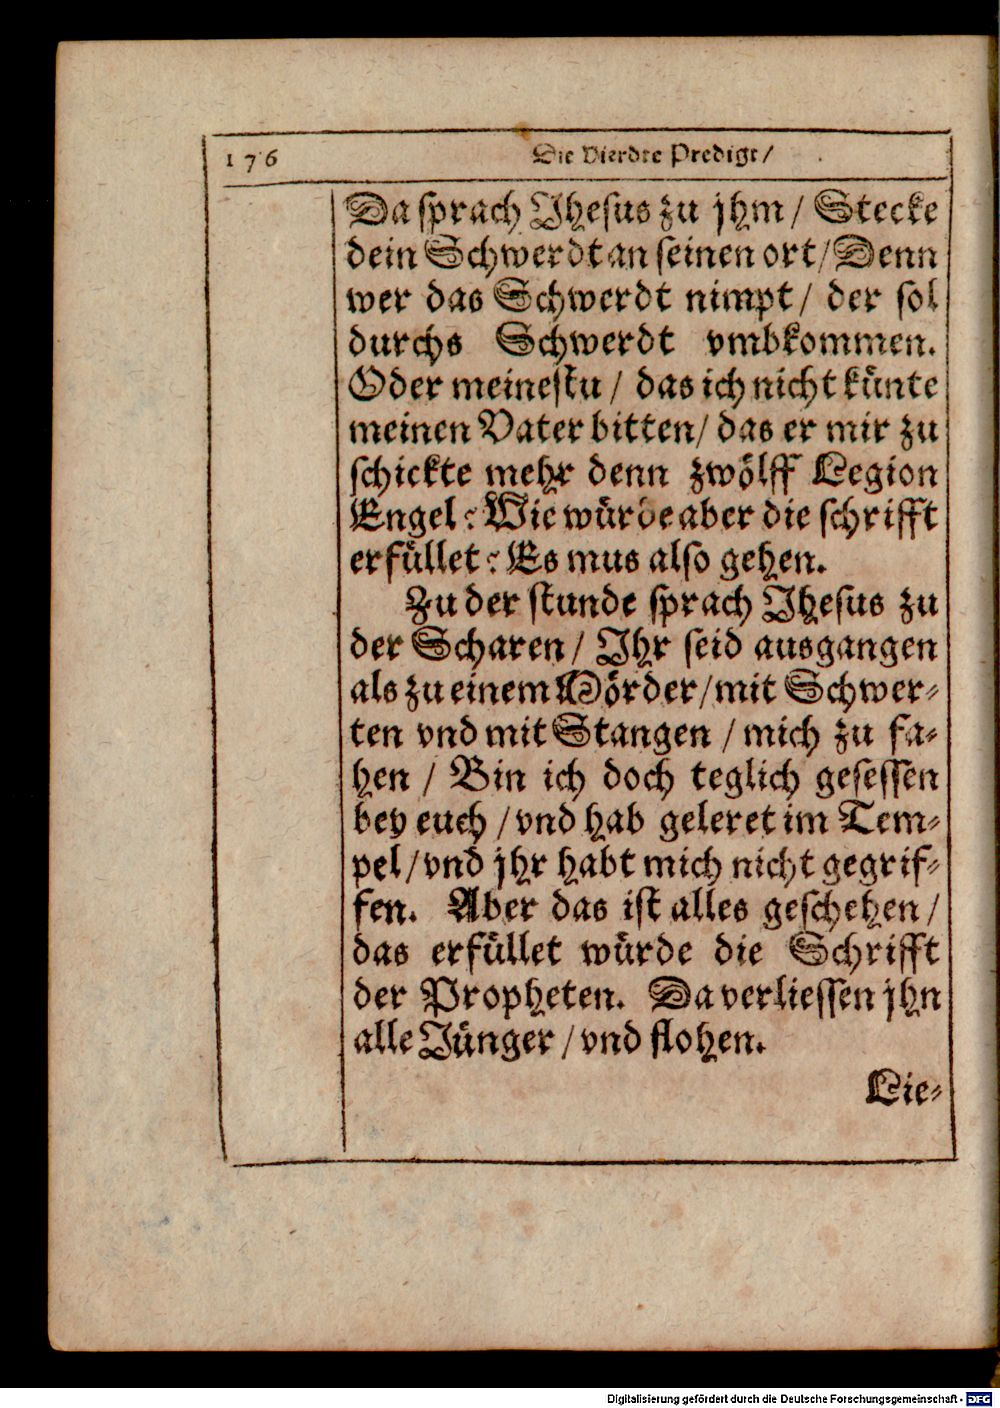 176 Die Vierdte Predigt/
Da sprach Jhesus zu jhm / Stecke
dein Schwerdt an seinen ort / Denn
wer das Schwerdt nimpt / der sol
durchs Schwerdt vmbkommen.
Oder meinestu / das ich nicht künte
meinen Vater bitten / das er mir zu
schickte mehr denn zwölff Legion
Engel? Wie würde aber die schrifft
erfüllet? Es mus also gehen.
Zu der stunde sprach Jhesus zu
der Scharen / Jhr seid ausgangen
als zu einem Mörder / mit Schwer-
ten vnd mit Stangen / mich zu fa-
hen / Bin ich doch teglich gesessen
bey euch / vnd hab geleret im Tem-
pel / vnd jhr habt mich nicht gegrif-
fen. Aber das ist alles geschehen /
das erfüllet würde die Schrifft
der Propheten. Da verliessen jhn
alle Jünger / vnd flohen.
Lie-
Digitalisierung gefördert durch die Deutsche Forschungsgemeinschaft - DFG